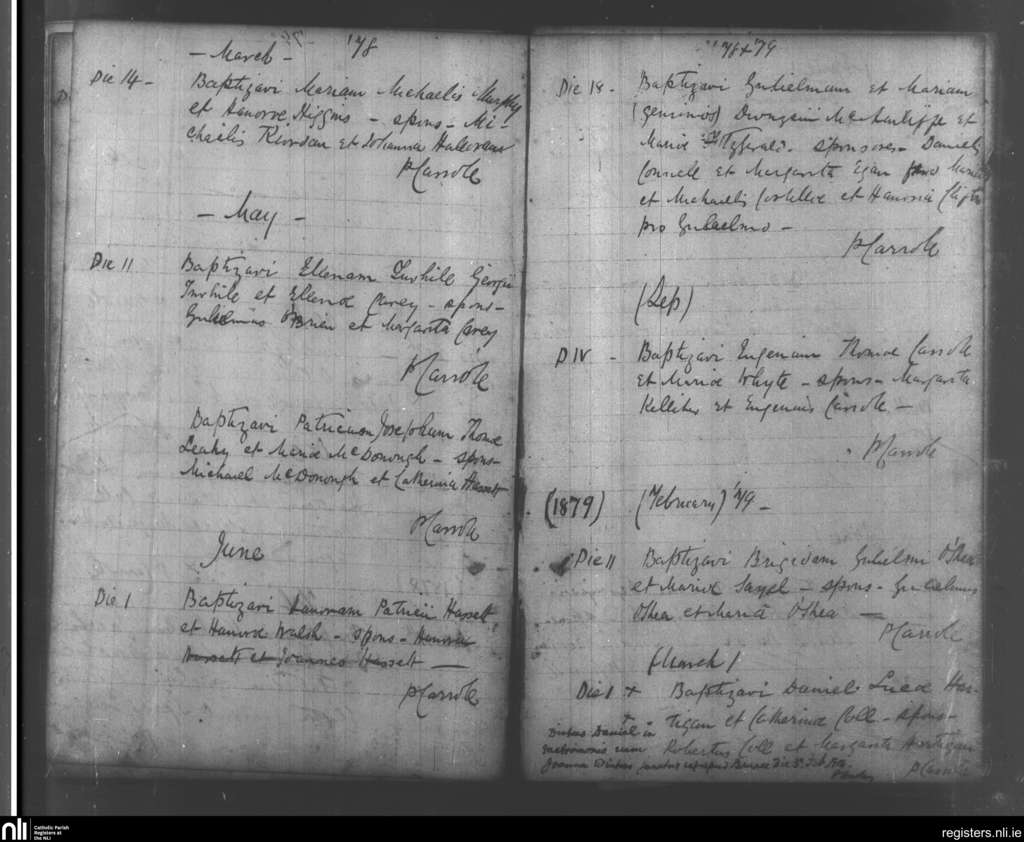 '78
— March —
Die 14 – Baptizavi Mariam Michaelis Murphy
et Honoræ Higgins – spons – Mi-
chaelis Riordan et Johanna Halloran
PCarroll
— May —
Die 11 Baptizavi Ellenam Twhile Georgii
Twhile et Ellenæ Carey – spons –
Gulielmus O'Brien et Margarita Carey
PCarroll
Baptizavi Patricium Josephum Thomæ
Leahy et Mariæ McDonough – spons –
Michael McDonough et Catherina Hassett
PCarroll
June
Die 1 Baptizavi Patricii Hassett
et Honoræ Walsh – spons – Honora
Hassett et Joannes Hassett —
PCarroll
'78 + 79
Die 18 – Baptizavi Gulielmum et Mariam
(geminios) McAuliffe et
Mariæ Fitzgerald – sponsores – Daniel
Connell et Margarita Egan
et Michaelis Costelloe et Honoria
pro Gulielmo –
PCarroll
(Sep)
D IV – Baptizavi Eugenium Thomæ Carroll
et Mariæ Whyte – spons – Margarita
Kelliher et Eugenius Carroll —
PCarroll
(1879) (February) '79 –
Die 11 Baptizavi Brigidam Gulielmi O'Shea
et Mariæ – spons – Gulielmus
O'Shea et Maria O'Shea —
PCarroll
(March)
Die 1 + Baptizavi Daniel Lucæ Har-
tigan et Catherinæ Coll – spons –
Robertus Coll et Margarita Hartigan
PCarroll
Dictus Daniel in
matrimonio cum
Joanna
nli
Catholic Parish
Registers at
the NLI
registers.nli.ie